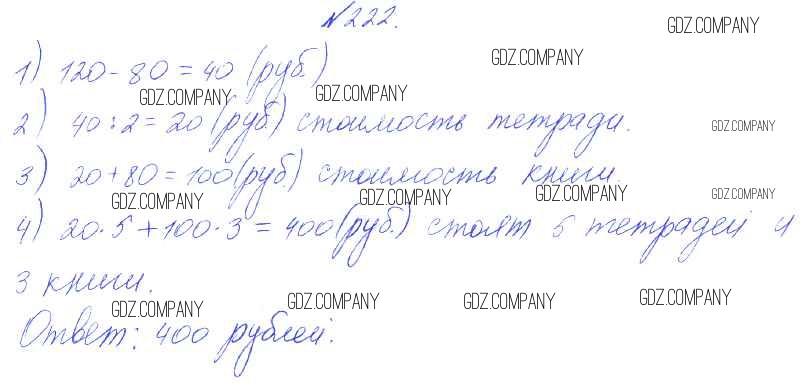 №222.
GDZ.COMPANY
1) 120 - 80 = 40 (руб.)
GDZ.COMPANY
GDZ.COMPANY
GDZ.COMPANY
2) 40 : 2 = 20 (руб) стоимость тетради.
GDZ.COMPANY
3) 20 + 80 = 100 (руб.) стоимость книги.
GDZ.COMPANY
GDZ.COMPANY
GDZ.COMPANY
GDZ.COMPANY
4) 20 · 5 + 100 · 3 = 400 (руб.) стоят 5 тетрадей и
3 книги.
GDZ.COMPANY
GDZ.COMPANY
GDZ.COMPANY
GDZ.COMPANY
Ответ: 400 рублей.